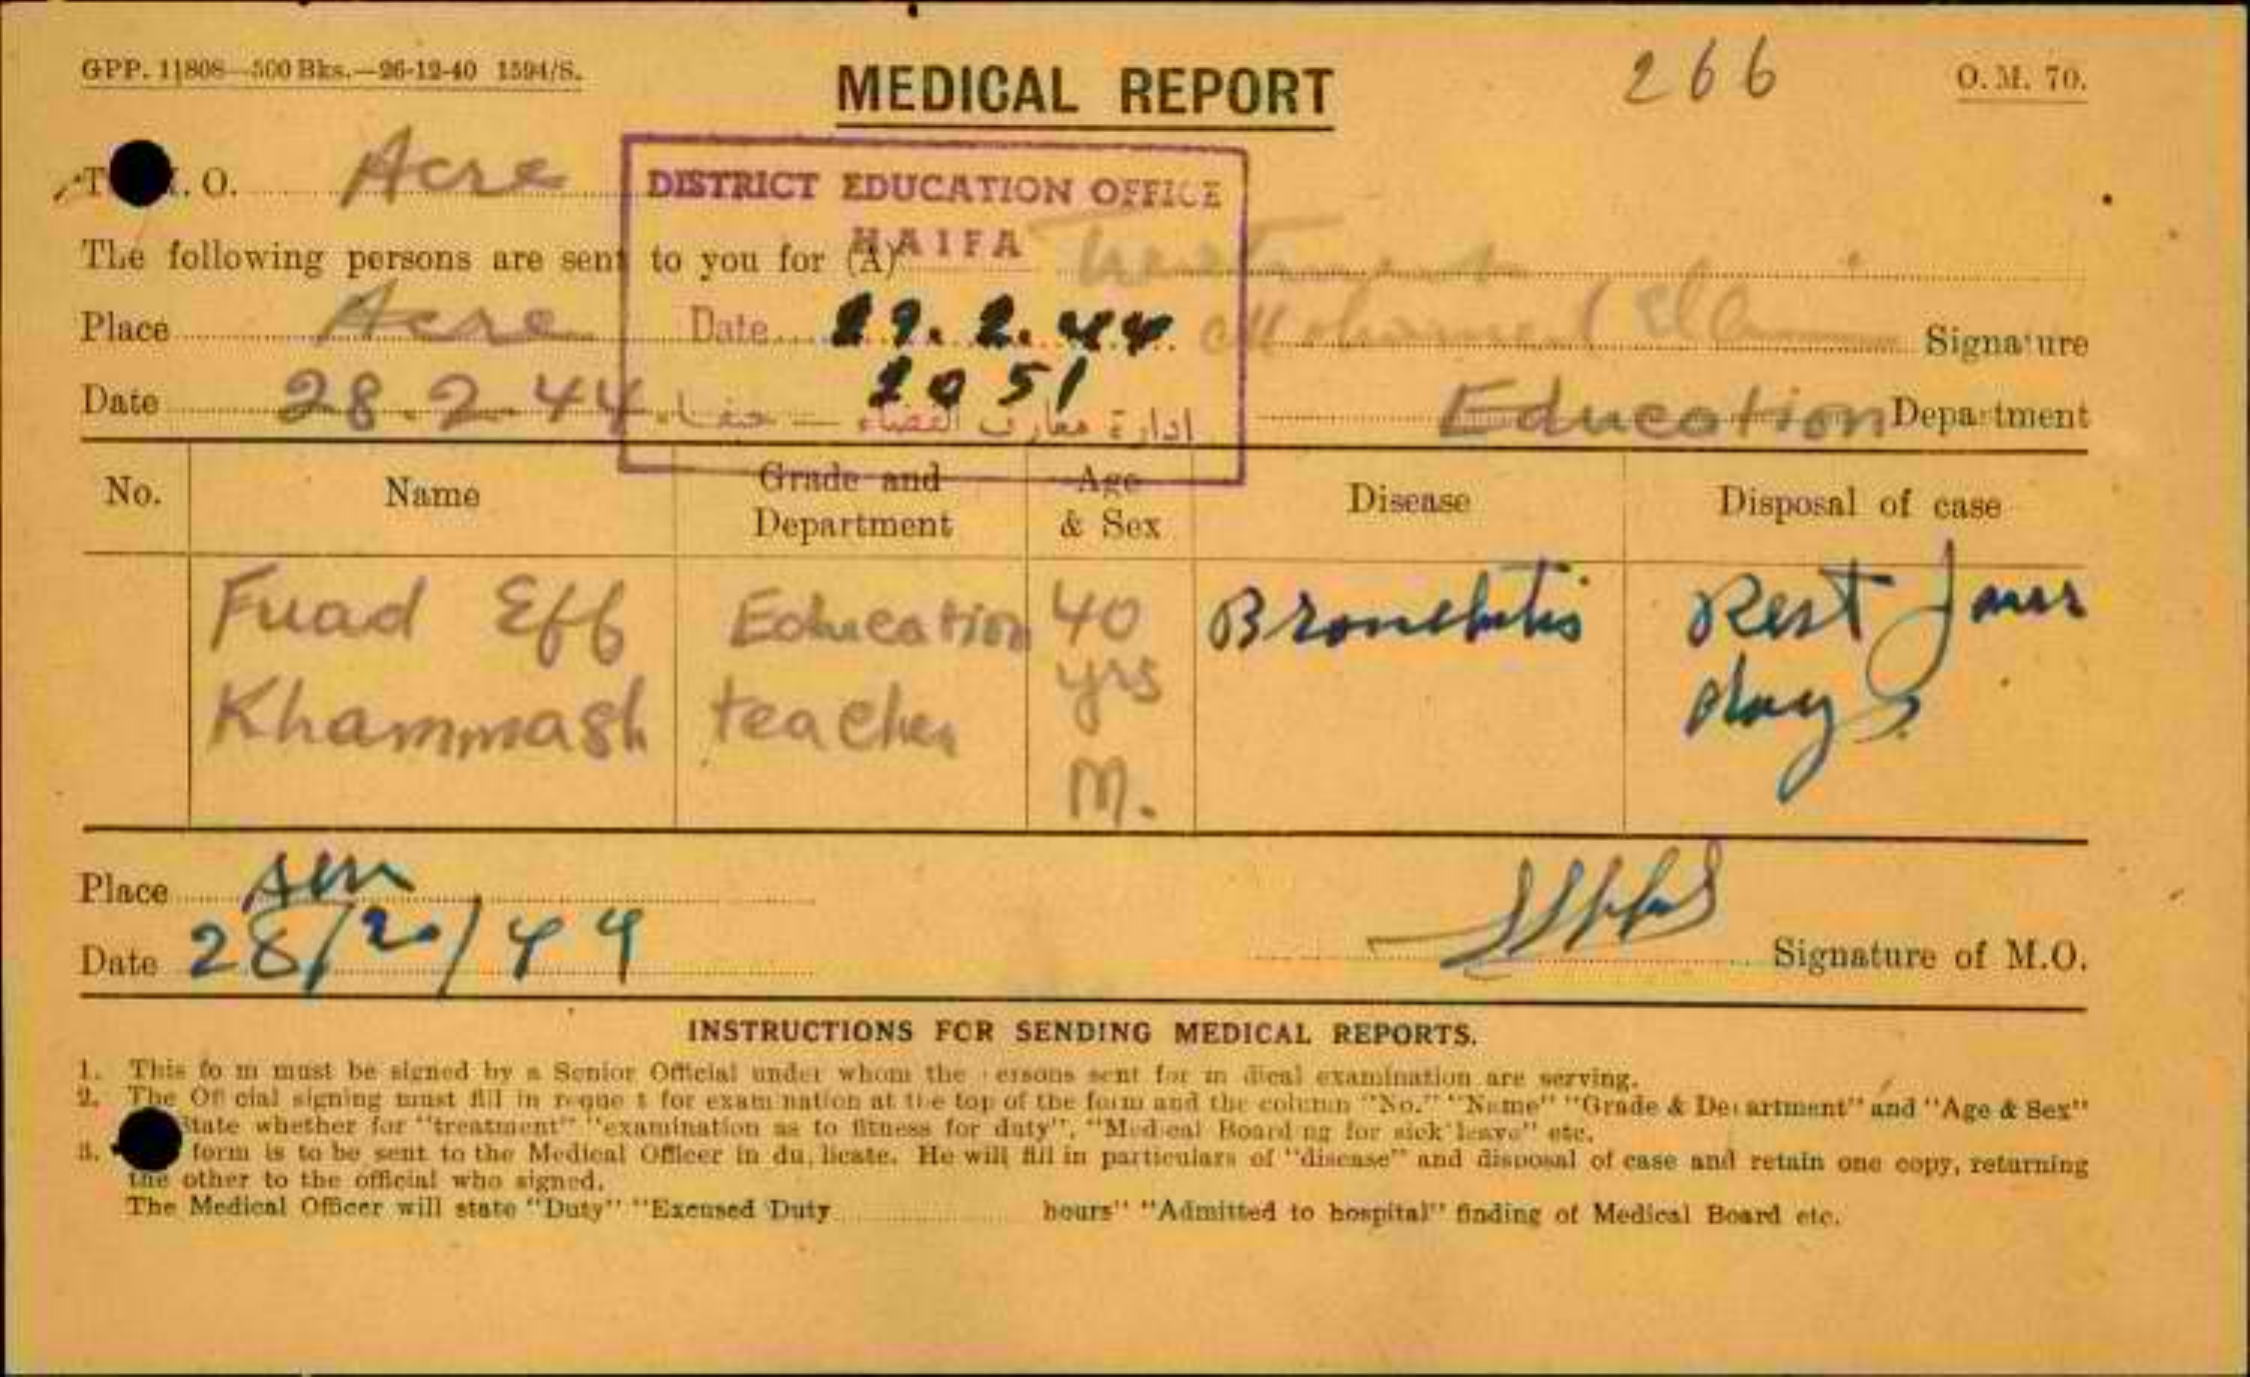 GPP. 11808—500 Bks.—26-12-40 1594/S.
MEDICAL REPORT
266
O. M. 70.
T . O. Acre
DISTRICT EDUCATION OFFICE
HAIFA
The following persons are sent to you for (A) Treatment
Place Acre
Date 29.2.44
Mohamed Signature
Date 28.2.44
2051
ادارة معارف القضاء — حيفا
Education Department
No. Name Grade and Department Age & Sex Disease Disposal of case
Fuad Eff Education 40 Bronchitis Rest four
Khammash teacher yrs days
M.
Place Acre
Date 28/2/44
Signature of M.O.
INSTRUCTIONS FOR SENDING MEDICAL REPORTS.
1. This fo m must be signed by a Senior Official under whom the ersons sent for m dical examination are serving.
2. The Of cial signing must fill in reque t for exam nation at the top of the form and the column "No." "Name" "Grade & De artment" and "Age & Sex"
State whether for "treatment" "examination as to fitness for duty", "Medical Board ng for sick leave" etc.
3. form is to be sent to the Medical Officer in du licate. He will fill in particulars of "disease" and disposal of case and retain one copy, returning
the other to the official who signed.
The Medical Officer will state "Duty" "Excused Duty hours" "Admitted to hospital" finding of Medical Board etc.